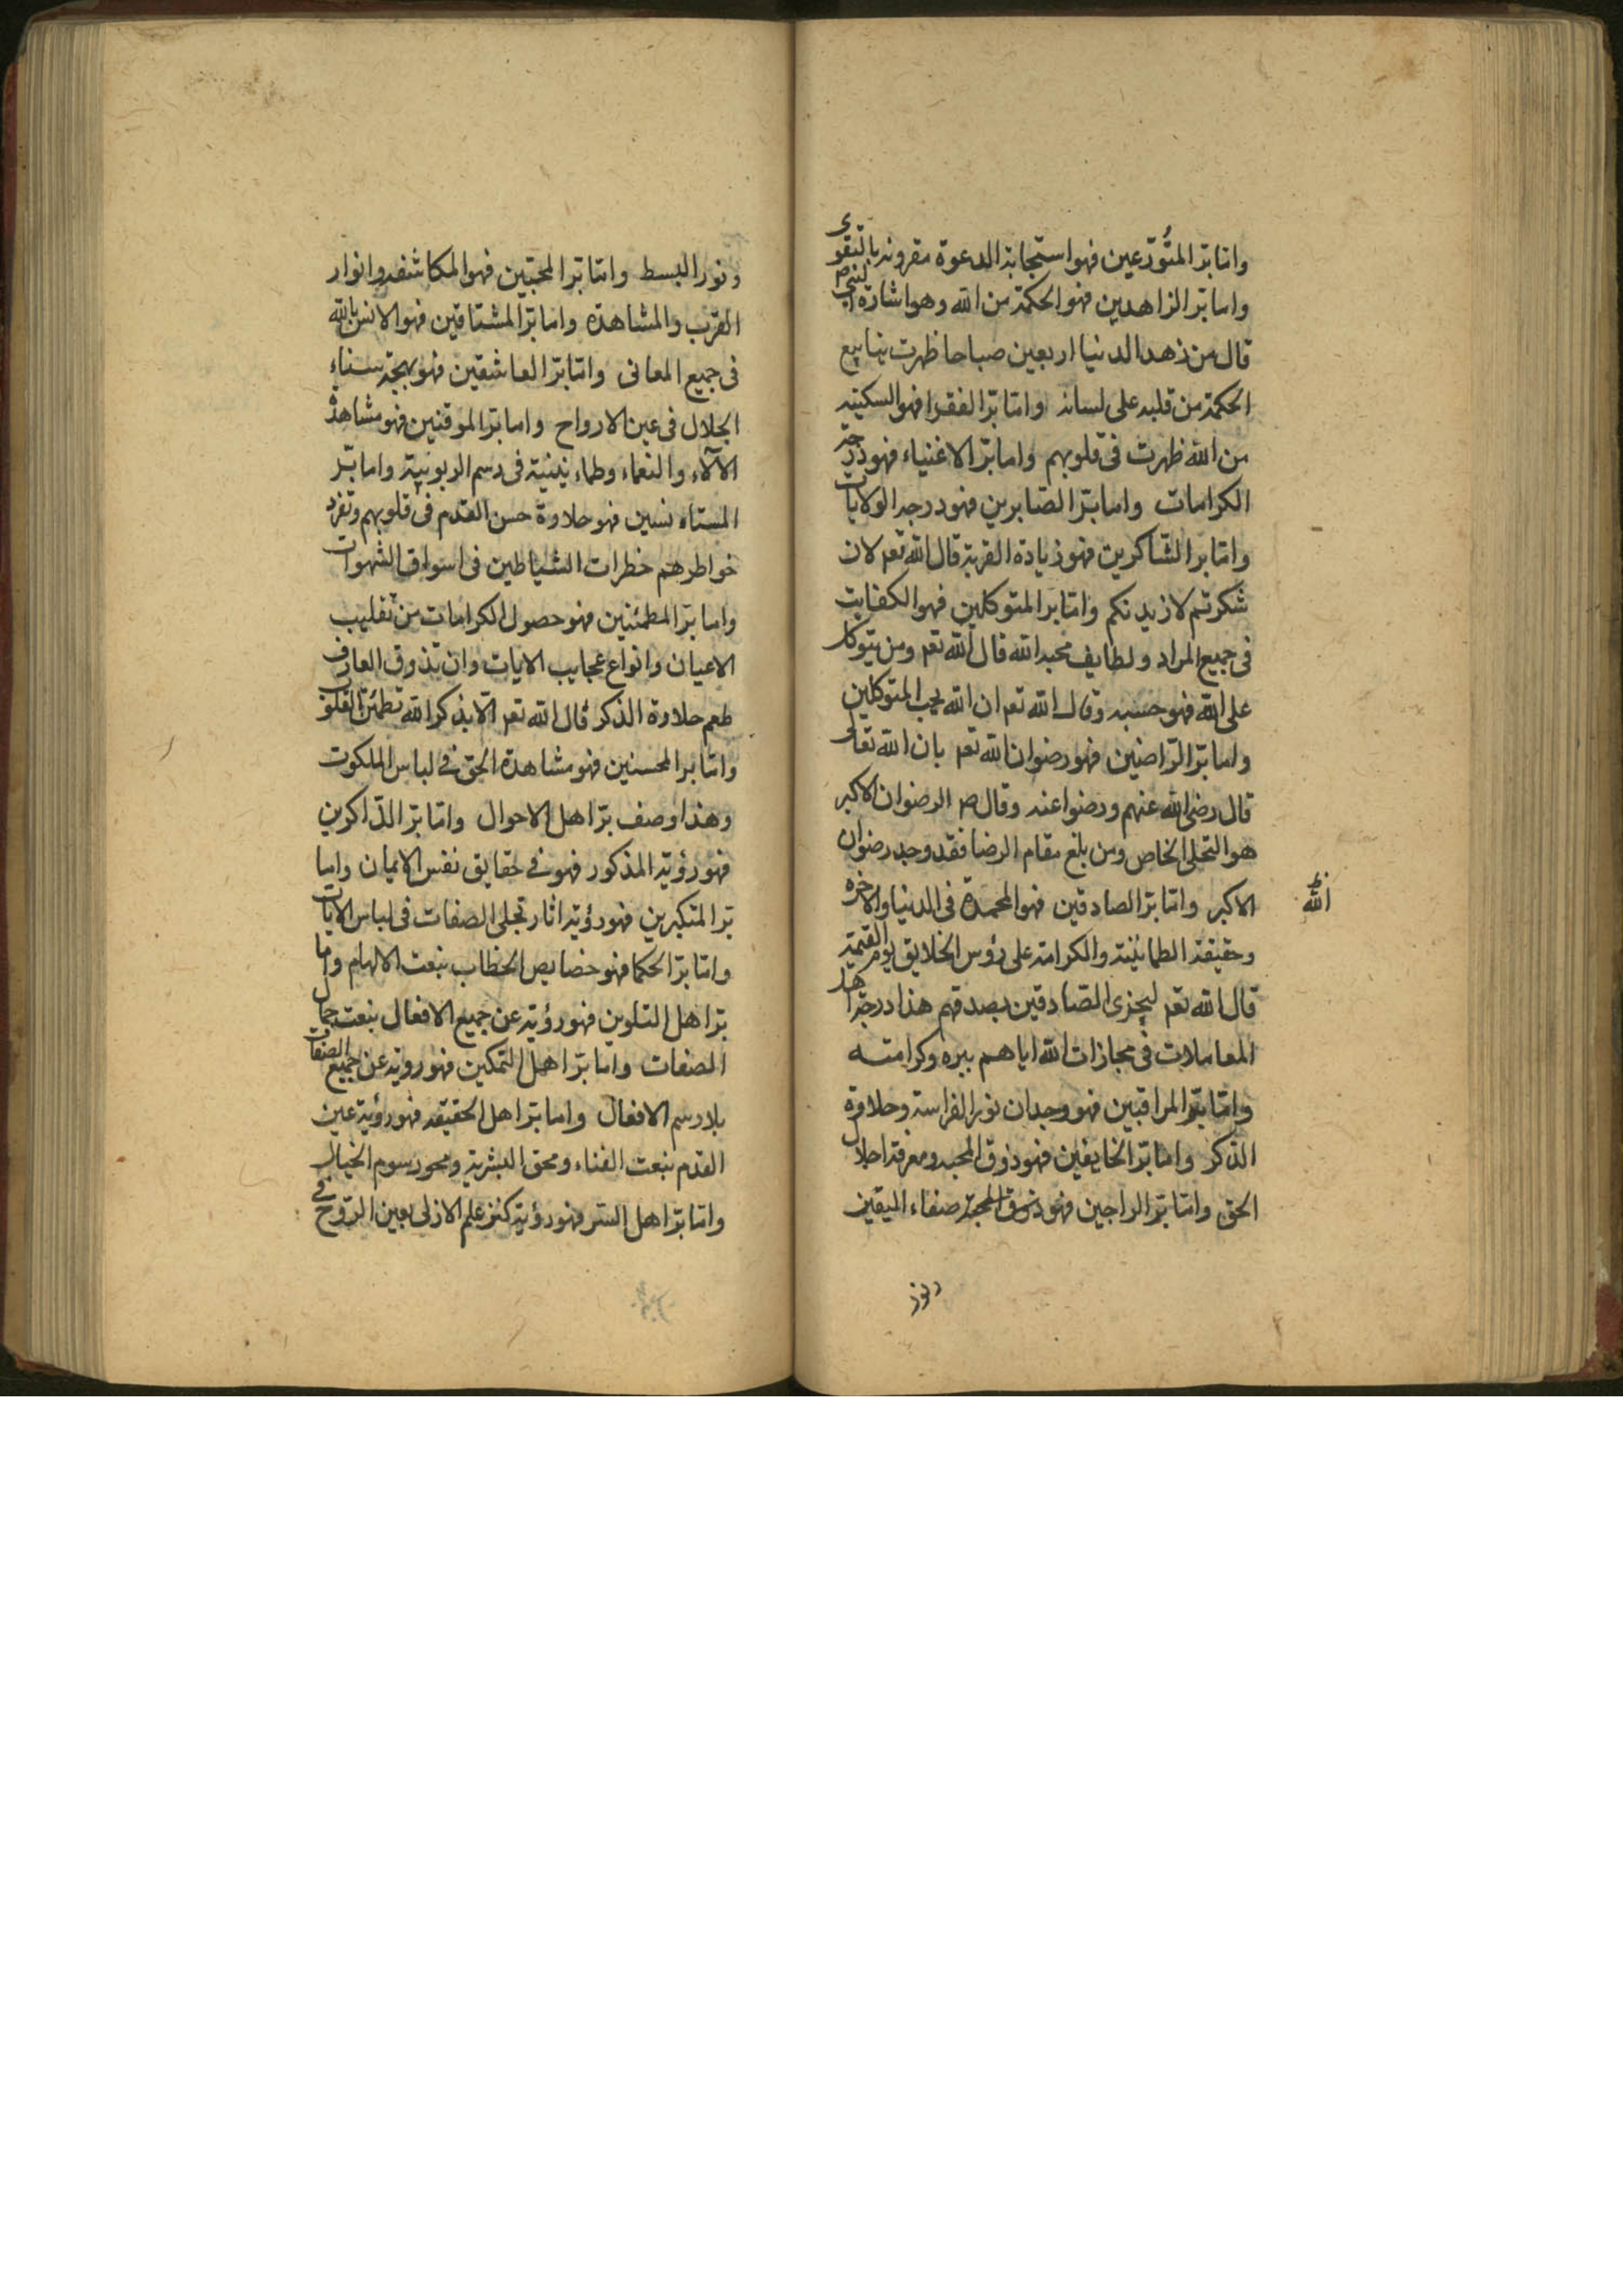 واما بر المتورعين فهو استجابة الدعوة مقرونه بالتقوى
واما بر الزاهدين فهو الحكمة من الله وهو اشارة النبى ص
قال من زهد الدنيا اربعين صباحا ظهرت ينابيع
الحكمة من قلبه على لسانه واما بر الفقرا فهو السكينه
من الله ظهرت فى قلوبهم واما بر الاغنياء فهو درجة
الكرامات واما بر الصّابرين فهو درجه الولايات
واما بر الشّاكرين فهو زيادة القربة قال الله تعه لان
شكرتم لازيدنكم واما بر المتوكلين فهو الكفايت
فى جميع المراد ولطايف محبه الله قال الله تعه ومن يتوكل
على الله فهو حسبه وقال الله تعه ان الله يحب المتوكلين
واما بر الرّاضين فهو رضوان الله تعه بان الله تعالى
قال رضى الله عنهم ورضوا عنه وقال ص الرضوان الاكبر
هو التجلى الخاص ومن بلغ مقام الرضا فقد وجد رضوان
الله
الاكبر واما بر الصادقين فهو المحمدة فى الدنيا والاخره
وحقيقة الطمانينة والكرامة على رؤس الخلايق يوم القيمة
قال الله تعه ليجزى الصّادقين بصدقهم هذا درجة اهل
المعاملات فى مجازات الله اياهم ببره وكرامته
واما بر المراقبين فهو وجدان نور الفراسة وحلاوة
الذكر واما بر الخايفين فهو ذوق المحبه ومعرفة اجلال
الحق واما بر الراجين فهو صفاء اليقين
ونور
ونور البسط واما بر المحبّين فهو المكاشفه وانوار
القرب والمشاهدة واما بر المشتاقين فهو الانس بالله
فى جميع المعانى واما بر العاشقين فهو بهجة سناء
الجلال فى عين الارواح واما بر الموقنين فهو مشاهدة
الآلاء والنعماء وطمانينية فى رسم الربوبية واما بر
المستانسين فهو حلاوة حسن القدم فى قلوبهم وتفرد
خواطرهم خطرات الشياطين فى اسواق الشهوات
واما بر المطمئنين فهو حصول الكرامات من تقليب
الاعيان وانواع عجايب الايات وان تذوق العارف
طعم حلاوة الذكر قال الله تعه الا بذكر الله تطمئن القلوب
واما بر المحسنين فهو مشاهدة الحق فى لباس الملكوت
وهذا وصف بر اهل الاحوال واما بر الذّاكرين
فهو رؤية المذكور فهو فى حقايق نفس الايمان واما
بر المتكبرين فهو رؤية اثار تجلى الصفات فى لباس الايات
واما بر الحكما فهو خصايص الخطاب بنعت الالهام واما
بر اهل التلوين فهو رؤيته عن جميع الافعال بنعت جمال
الصفات واما بر اهل التمكين فهو رويته عن جميع الصفات
بلا رسم الافعال واما بر اهل الحقيقه فهو رؤية عين
القدم بنعت الفناء ومحق البشرية ومحو رسوم الخيال
واما بر اهل السّر فهو رؤية كنز علم الازلى بعين الرّوح فى